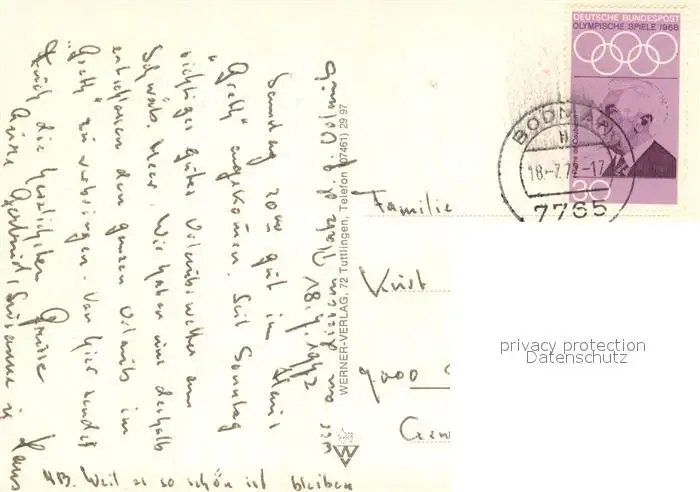 18.7.1972
Samstag 2000 gut im Haus
"Greth" angekommen. Seit Sonntag
richtiges gutes Urlaubswetter am
Schwäb. Meer. Wir haben uns deshalb
entschlossen den ganzen Urlaub im
"Greth" zu verbringen. Von hier sendet
Euch die herzlichsten Grüsse
NB. Weil es so schön ist bleiben
WERNER-VERLAG, 72 Tuttlingen, Telefon (07461) 29 97
DEUTSCHE BUNDESPOST
OLYMPISCHE SPIELE 1968
30
BODMAN
18.-7.72-17
7765
Familie
Kurt
9000
privacy protection
Datenschutz